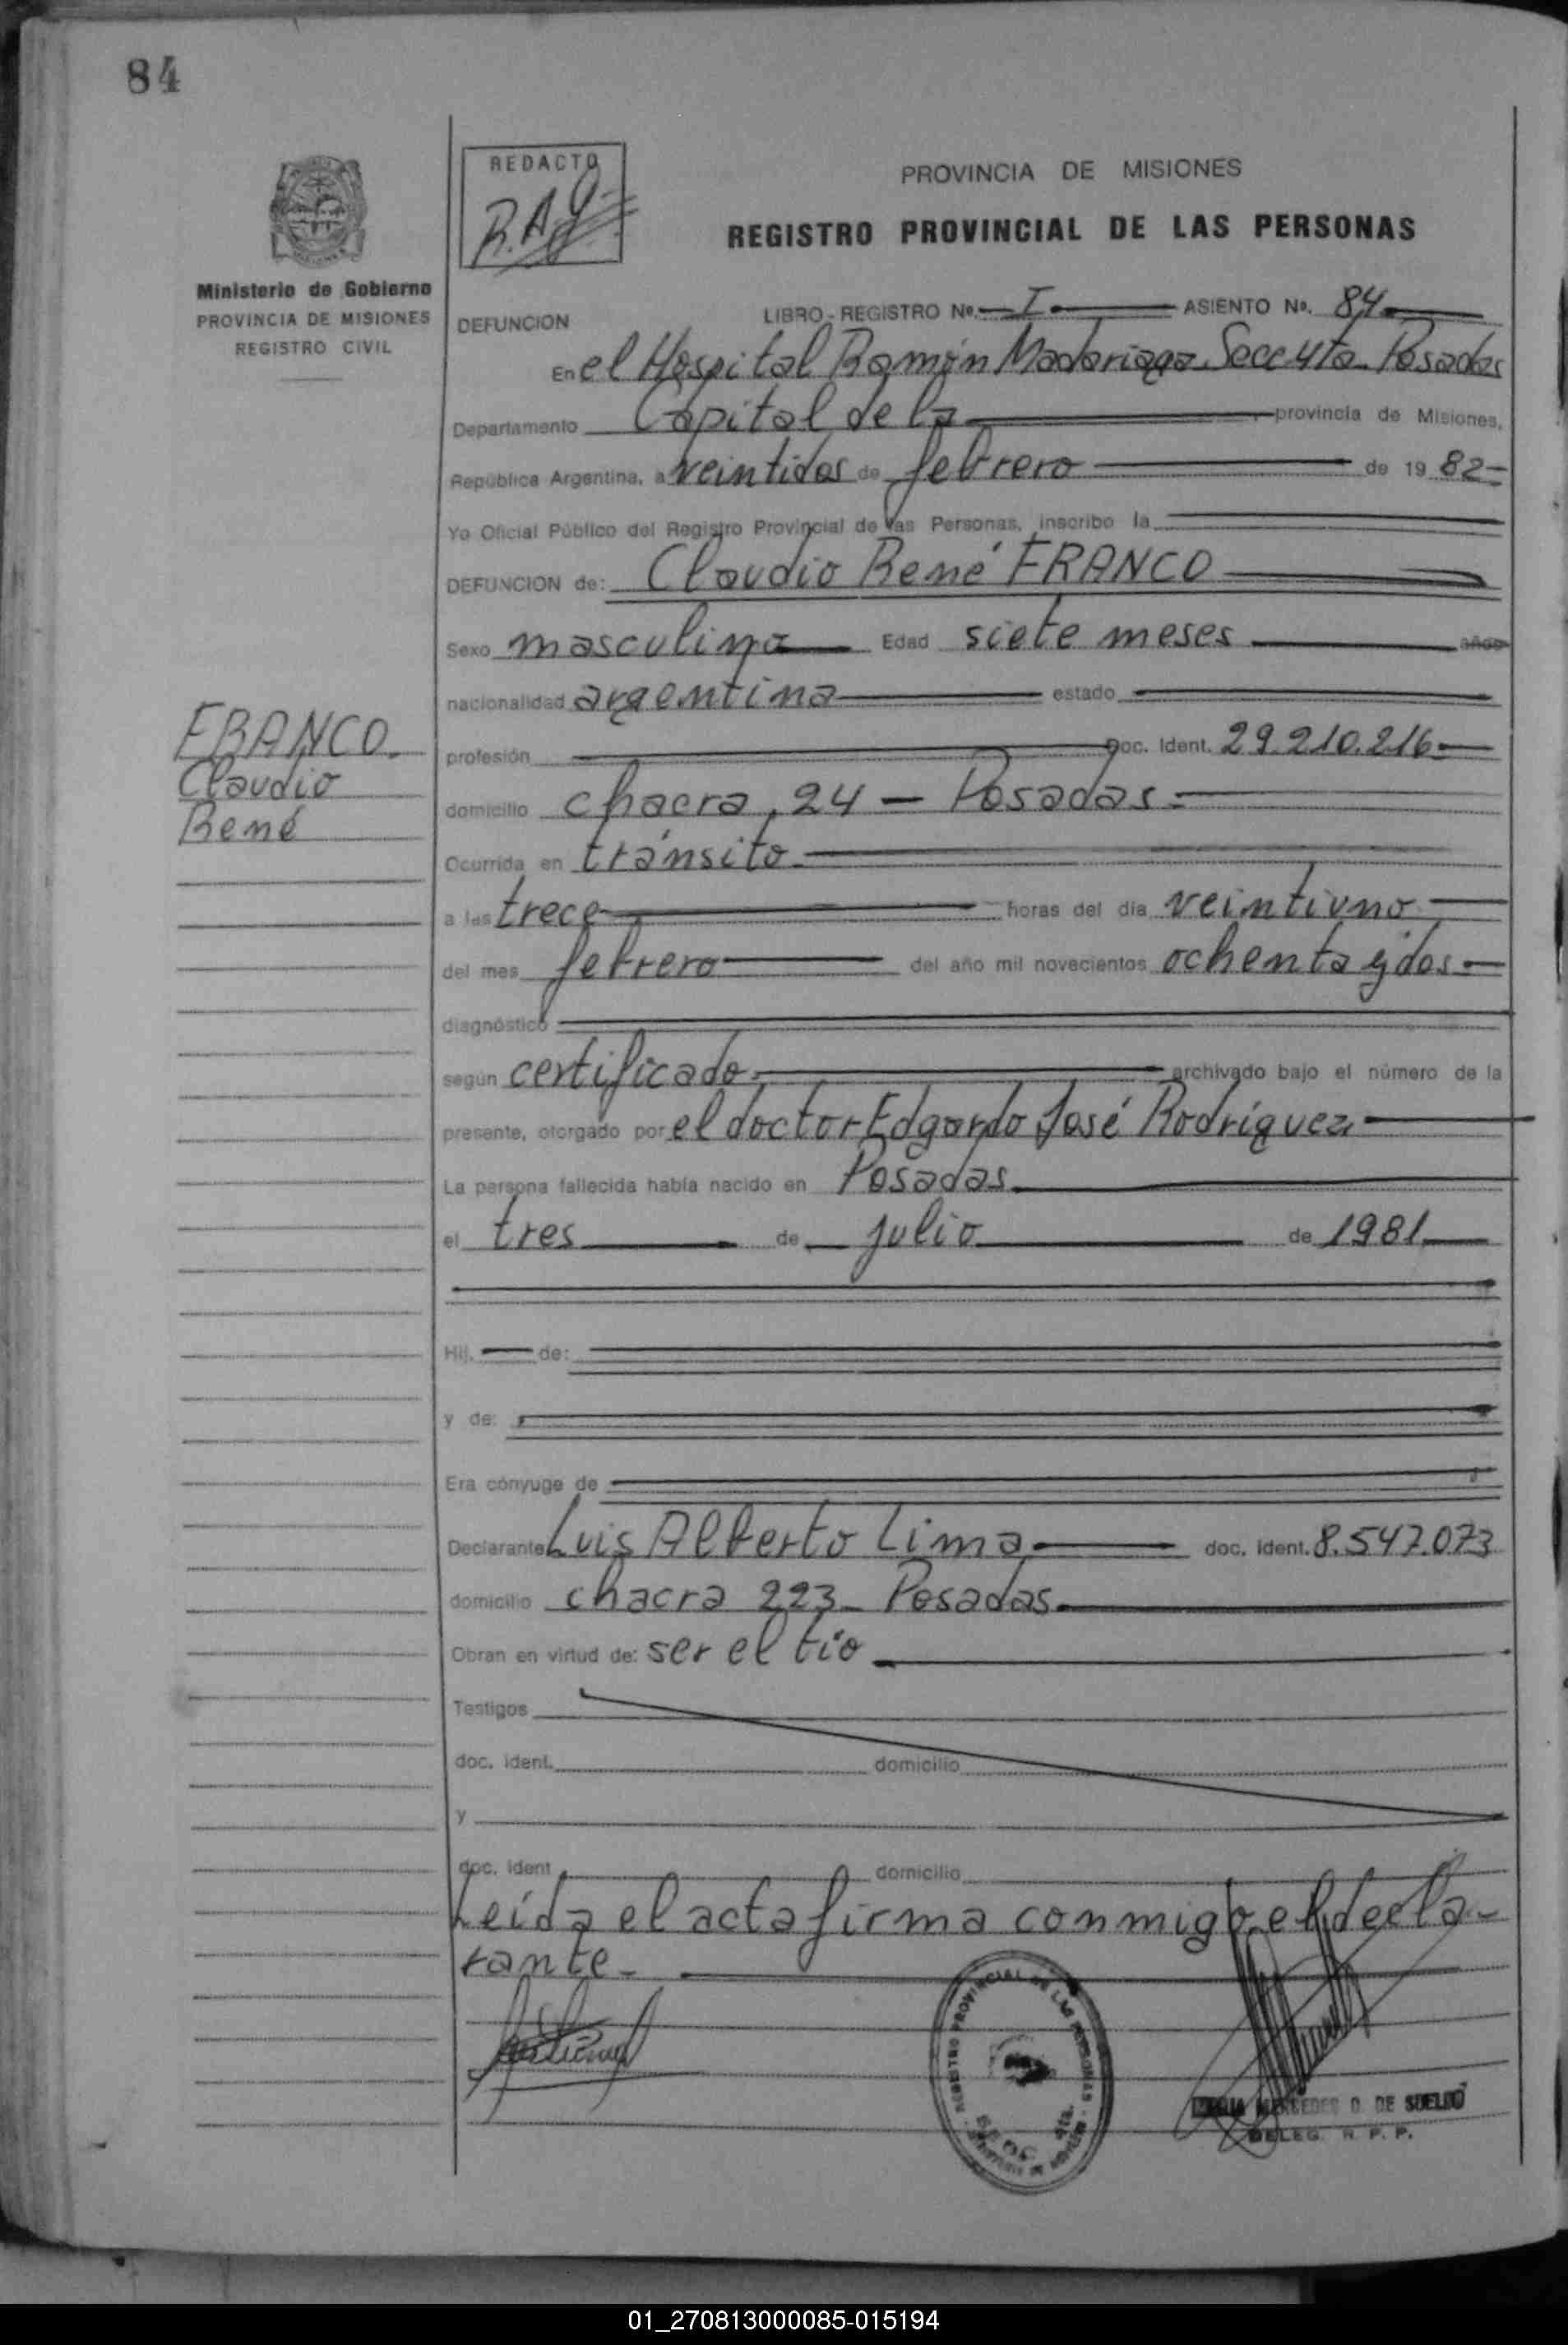 84
REDACTO
R.A.G.
PROVINCIA DE MISIONES
REGISTRO PROVINCIAL DE LAS PERSONAS
Ministerio de Gobierno
PROVINCIA DE MISIONES
REGISTRO CIVIL
DEFUNCION LIBRO-REGISTRO No. I ASIENTO No. 84
En el Hospital Ramón Madariaga. Secc 4ta. Posadas
Departamento Capital de la provincia de Misiones,
República Argentina, a veintidos de febrero de 19 82-
Yo Oficial Público del Registro Provincial de las Personas, inscribo la
DEFUNCION de: Claudio René FRANCO
Sexo masculino Edad siete meses años
nacionalidad argentina estado
FRANCO.
Claudio
René
profesión Doc. Ident. 29.210.216-
domicilio chacra, 24 - Posadas.
Ocurrida en tránsito.
a las trece horas del día veintiuno
del mes febrero del año mil novecientos ochenta y dos.
diagnóstico
según certificado. archivado bajo el número de la
presente, otorgado por el doctor Edgardo José Rodríguez.
La persona fallecida había nacido en Posadas.
el tres de julio de 1981
Hij. de:
y de:
Era cónyuge de
Declarante Luis Alberto Lima doc. Ident. 8.547.073
domicilio chacra 223- Posadas.
Obran en virtud de: ser el tío
Testigos
doc. Ident. domicilio
y
doc. Ident domicilio
Leída el acta firma conmigo el decla-
rante-
REGISTRO PROVINCIAL DE LAS PERSONAS
SECC. 4ta.
MERCEDES D. DE SUELDO
DELEG. R. P. P.
01_270813000085-015194